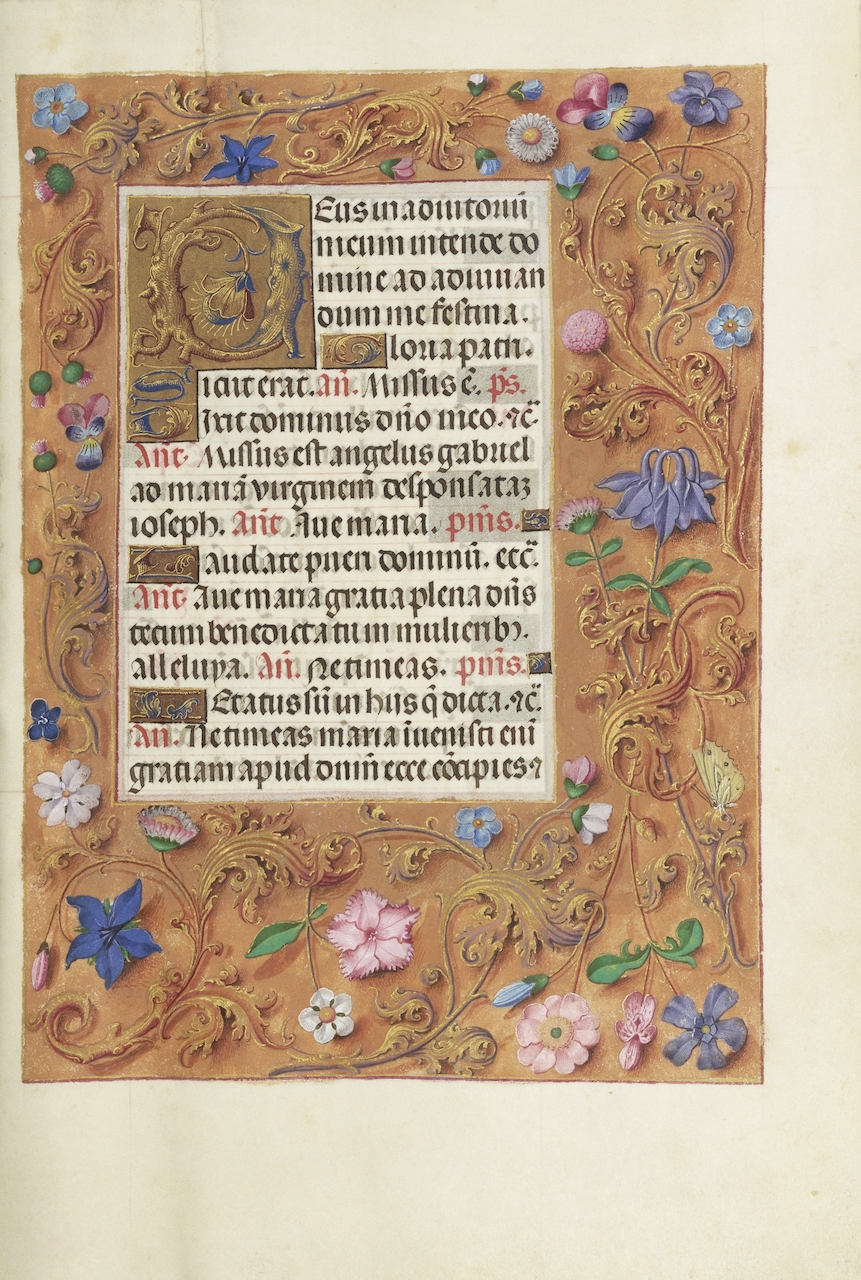 Deus in adiutoriū
meum intende do
mine ad adiuuan
dum me festina.
Gloria patri.
Sicut erat. an̄. Missus ē. ps̄.
Dixit dominus dn̄o meo. ⁊c̄.
Añt. Missus est angelus gabriel
ad mariā virginem desponsataꝫ
ioseph. Añt. Aue maria. pm̄s.
Laudate pueri dominū. ecc̄.
Añt. Aue maria gratia plena dn̄s
tecum benedicta tu in mulierib⁊.
alleluya. An̄. Ne timeas. pm̄s.
Letatus sū in hiis q̄ dicta. ⁊c̄.
An̄. Ne timeas maria īuenisti eni̅
gratiam apud dominū ecce cōcipies ⁊